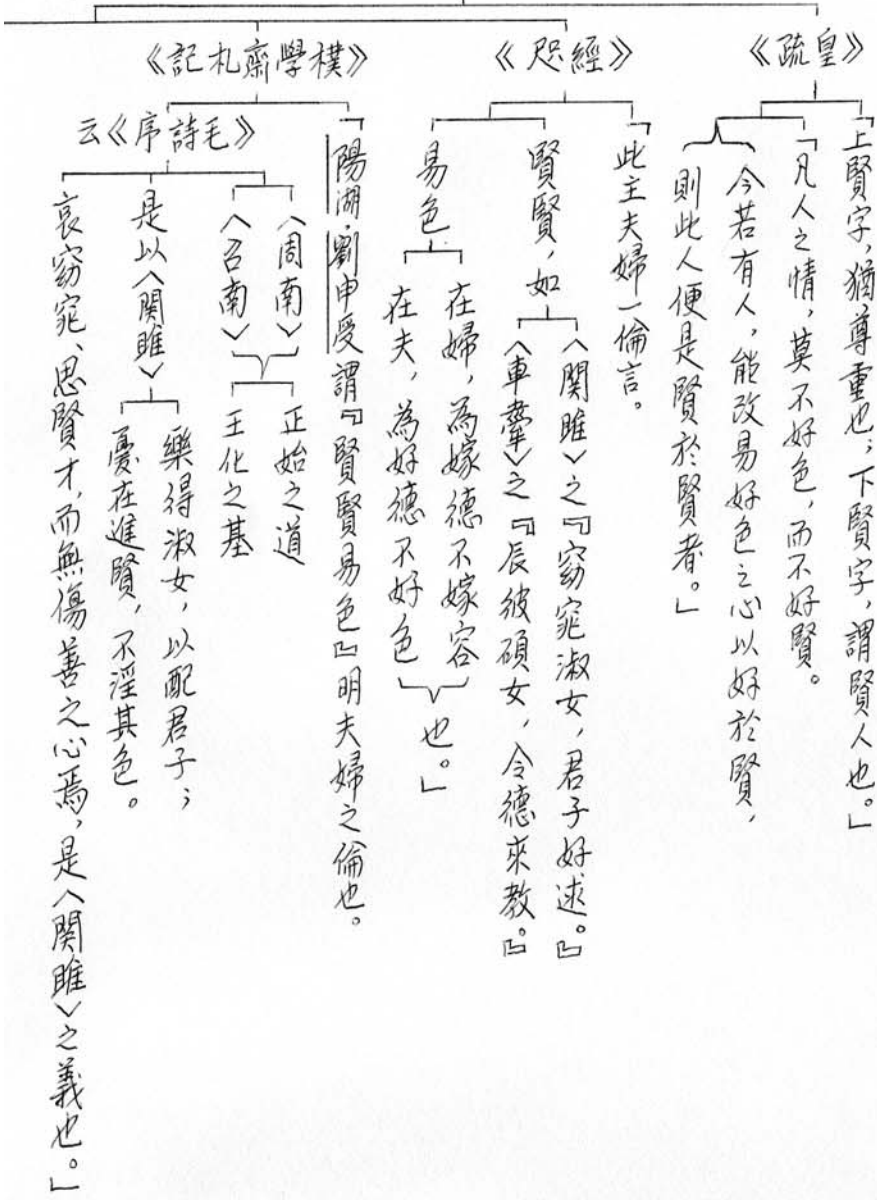 《皇疏》
「上賢字，猶尊重也；下賢字，謂賢人也。」
「凡人之情，莫不好色，而不好賢。
今若有人，能改易好色之心以好於賢，
則此人便是賢於賢者。」
《經咫》
「此主夫婦一倫言。
賢賢，如
〈關雎〉之『窈窕淑女，君子好逑。』
〈車舝〉之『辰彼碩女，令德來教。』
易色
在婦，為嫁德不嫁容
在夫，為好德不好色
也。」
《樸學齋札記》
「陽湖．劉申受謂『賢賢易色』明夫婦之倫也。
《毛詩序》云
〈周南〉
〈召南〉
正始之道
王化之基
是以〈關雎〉
樂得淑女，以配君子；
憂在進賢，不淫其色。
哀窈窕、思賢才，而無傷善之心焉，是〈關雎〉之義也。」